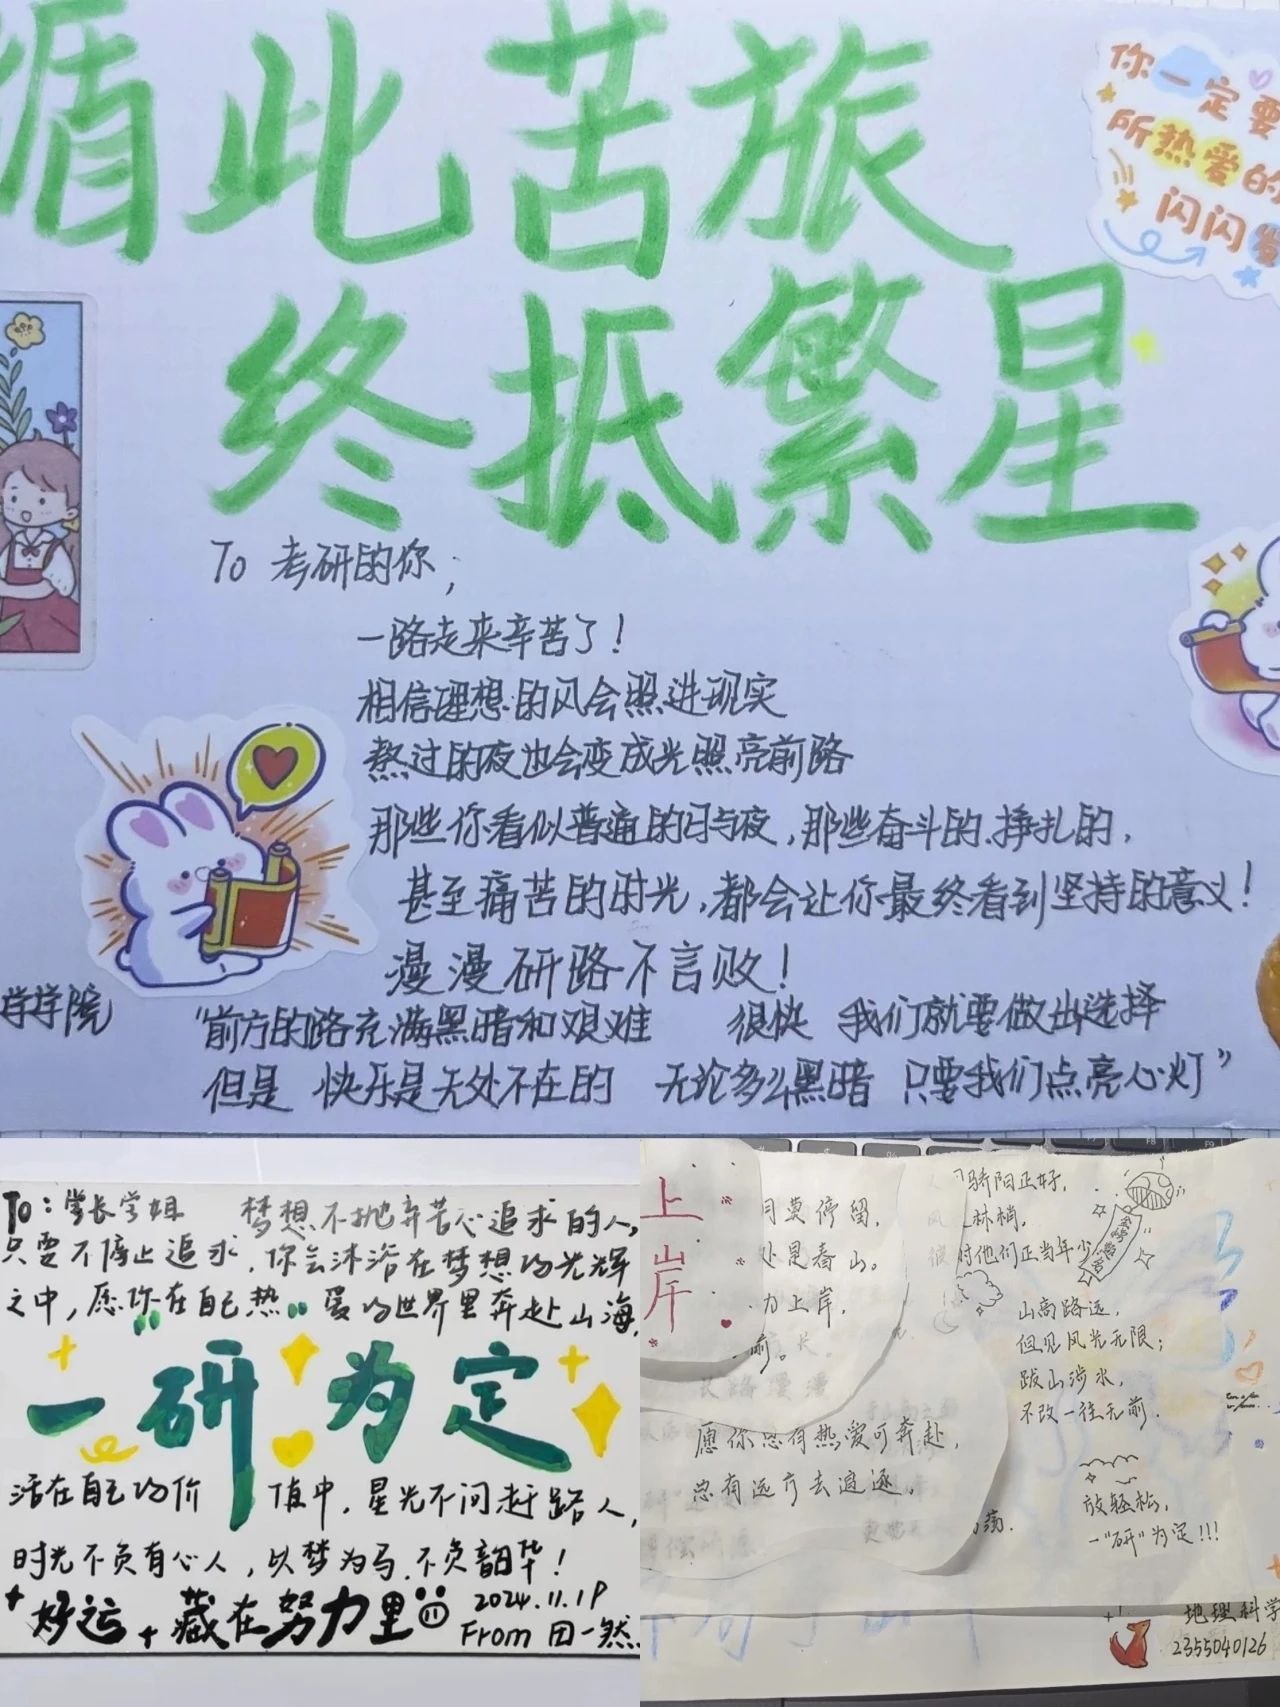 循此苦旅
终抵繁星
你一定要
所热爱的
闪闪发
To 考研的你；
一路走来辛苦了！
相信理想的风会照进现实
熬过的夜也会变成光照亮前路
那些你看似普通的日与夜，那些奋斗的、挣扎的，
甚至痛苦的时光，都会让你最终看到坚持的意义！
漫漫研路不言败！
学学院
“前方的路充满黑暗和艰难 很快 我们就要做出选择
但是 快乐是无处不在的 无论多么黑暗 只要我们点亮心灯”
To：学长学姐 梦想不抛弃苦心追求的人，
只要不停止追求，你会沐浴在梦想的光辉
之中，愿你在自己热爱的世界里奔赴山海，
一研为定
活在自己的价值中，星光不问赶路人，
时光不负有心人，以梦为马，不负韶华！
好运藏在努力里
2024.11.19
From 田一然
上岸
莫停留，
处是春山。
力上岸，
前。
长路漫漫
愿你总有热爱可奔赴，
总有远方去追逐。
骄阳正好，
林梢，
时他们正当年少
山高路远，
但见风光无限；
跋山涉水，
不改一往无前.
放轻松，
一“研”为定!!!
地理科学
2355040126